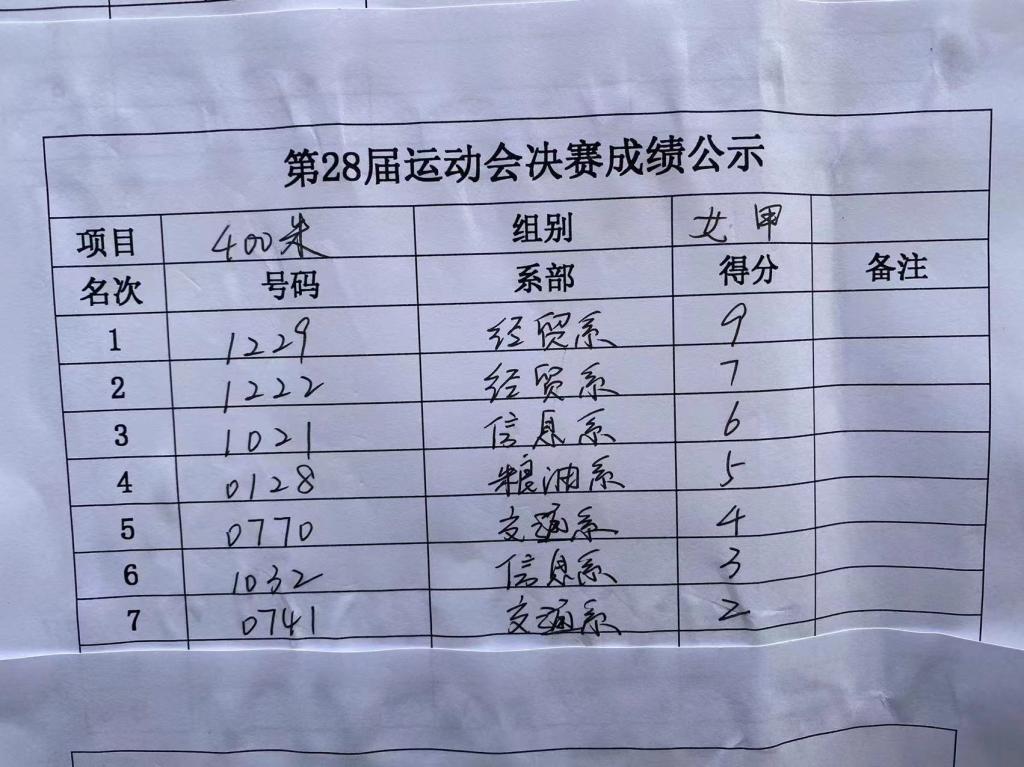 第28届运动会决赛成绩公示
项目 400米 组别 女甲
名次 号码 系部 得分 备注
1 1229 经贸系 9
2 1222 经贸系 7
3 1021 信息系 6
4 0128 粮油系 5
5 0770 交通系 4
6 1032 信息系 3
7 0741 交通系 2